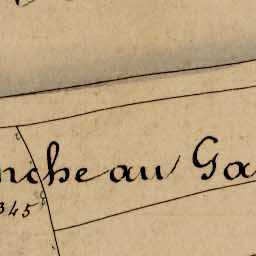 nche au Ga
345